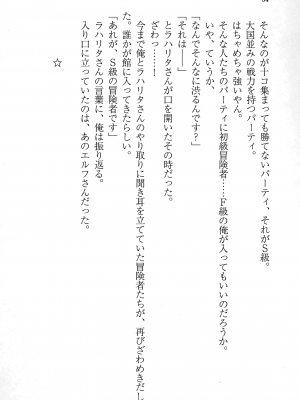 そんなのが十コ集まっても勝てないパーティ、それがS級。
大国並みの戦力を持つパーティ。
はちゃめちゃ強いやん。
そんな人たちのパーティに初級冒険者……F級の俺が入ってもいいのだろうか。
いや、ていうか、
「なんでそんなに渋るんです?」
「それは――」
とラハリタさんが口を開いたその時だった。
ざわっ……
今まで俺とラハリタさんのやり取りに聞き耳を立てていた冒険者たちが、再びざわめきだし
た。誰かが館に入ってきたらしい。
「あれが、S級の冒険者です」
ラハリタさんの言葉に、俺は振り返る。
入り口に立っていたのは、あのエルフさんだった。
☆